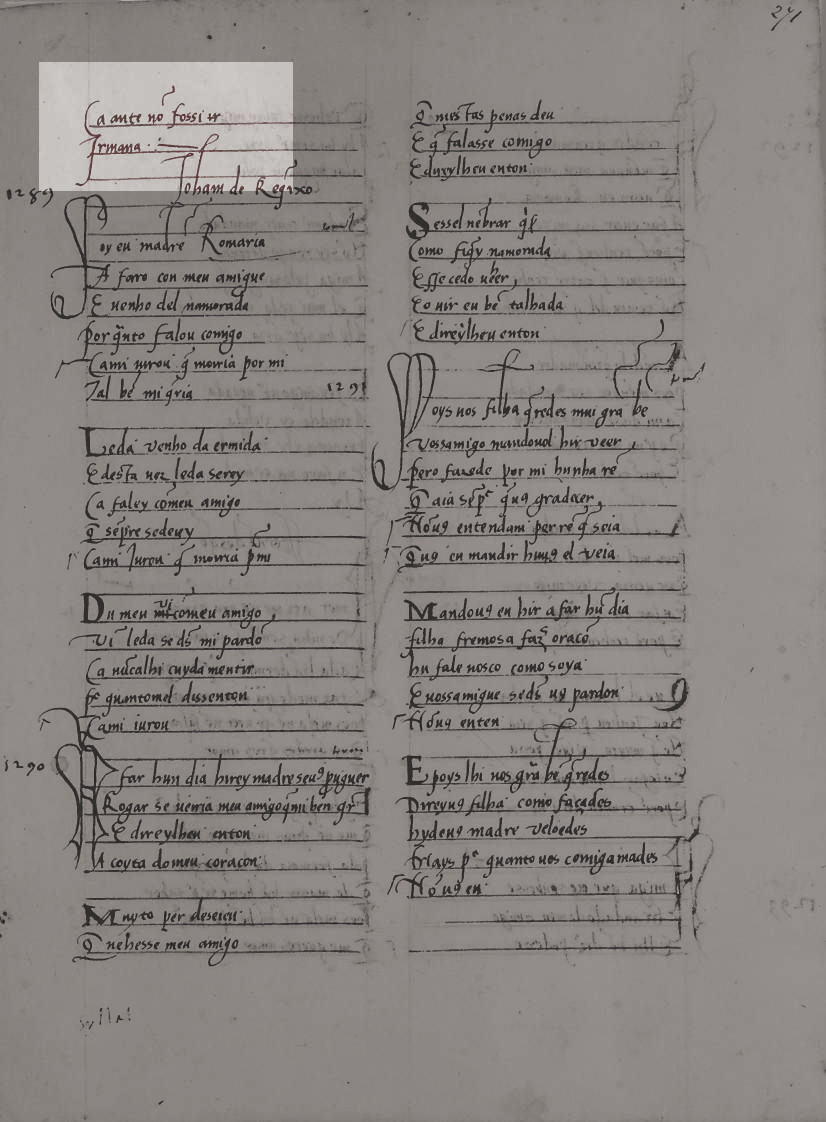 271
Ca ante nō fossi ir
Irmana
1289 Joham de Reqixo
Foy eu madre Romaria
A farro con meu amigue
E uenho del namorada
Por q̄nto falou comigo
Cami iurou q̄ morria por mi
Tal bē mi q̄ria
Leda venho da ermida
E desta uez leda serey
Ca faley cōmeu amigo
Q̄ sēpre
Cami Jurou q̄ morria p̄mi
Du meu ui cōmeu amigo
Vi leda se ds̄ mi pardō
Ca nūcalhi cuyda mentir
quantomel dissenton
Cami iurou
1290
A far hun dia hirey madre
Rogar se uerria meu amigo
E direylheu enton
A coyta do meu coraçon
Muyto per deseieu
Q̄ uehesse meu amigo
Q̄ mestas penas deu
E q̄ falasse comigo
E direylheu enton
Sessel nēbrar
Como fiq̄y namorada
E sse cedo ueer
E o uir eu bē talhada
E direylheu enton
1291
Poys uos filha q̄redes mui grā bē
Vossamigo mandouol hir veer
Pero fazede por mi hunha rē
Q̄ aia sēp̄ q̄ u9 gradecer
Nō u9 entendam per rē q̄ seia
Q̄ u9 eu mandir hu u9 el veia
Mandou9 eu hir a far hū dia
filha fremosa
hu fale uosco como soya
E uossamigue se ds̄ u9 pardon
Nō u9 enten
E poys lhi uos grā bē q̄redes
Direyu9 filha como façades
hydeu9 madre veloedes
quanto uos comigamades
Nō u9 en